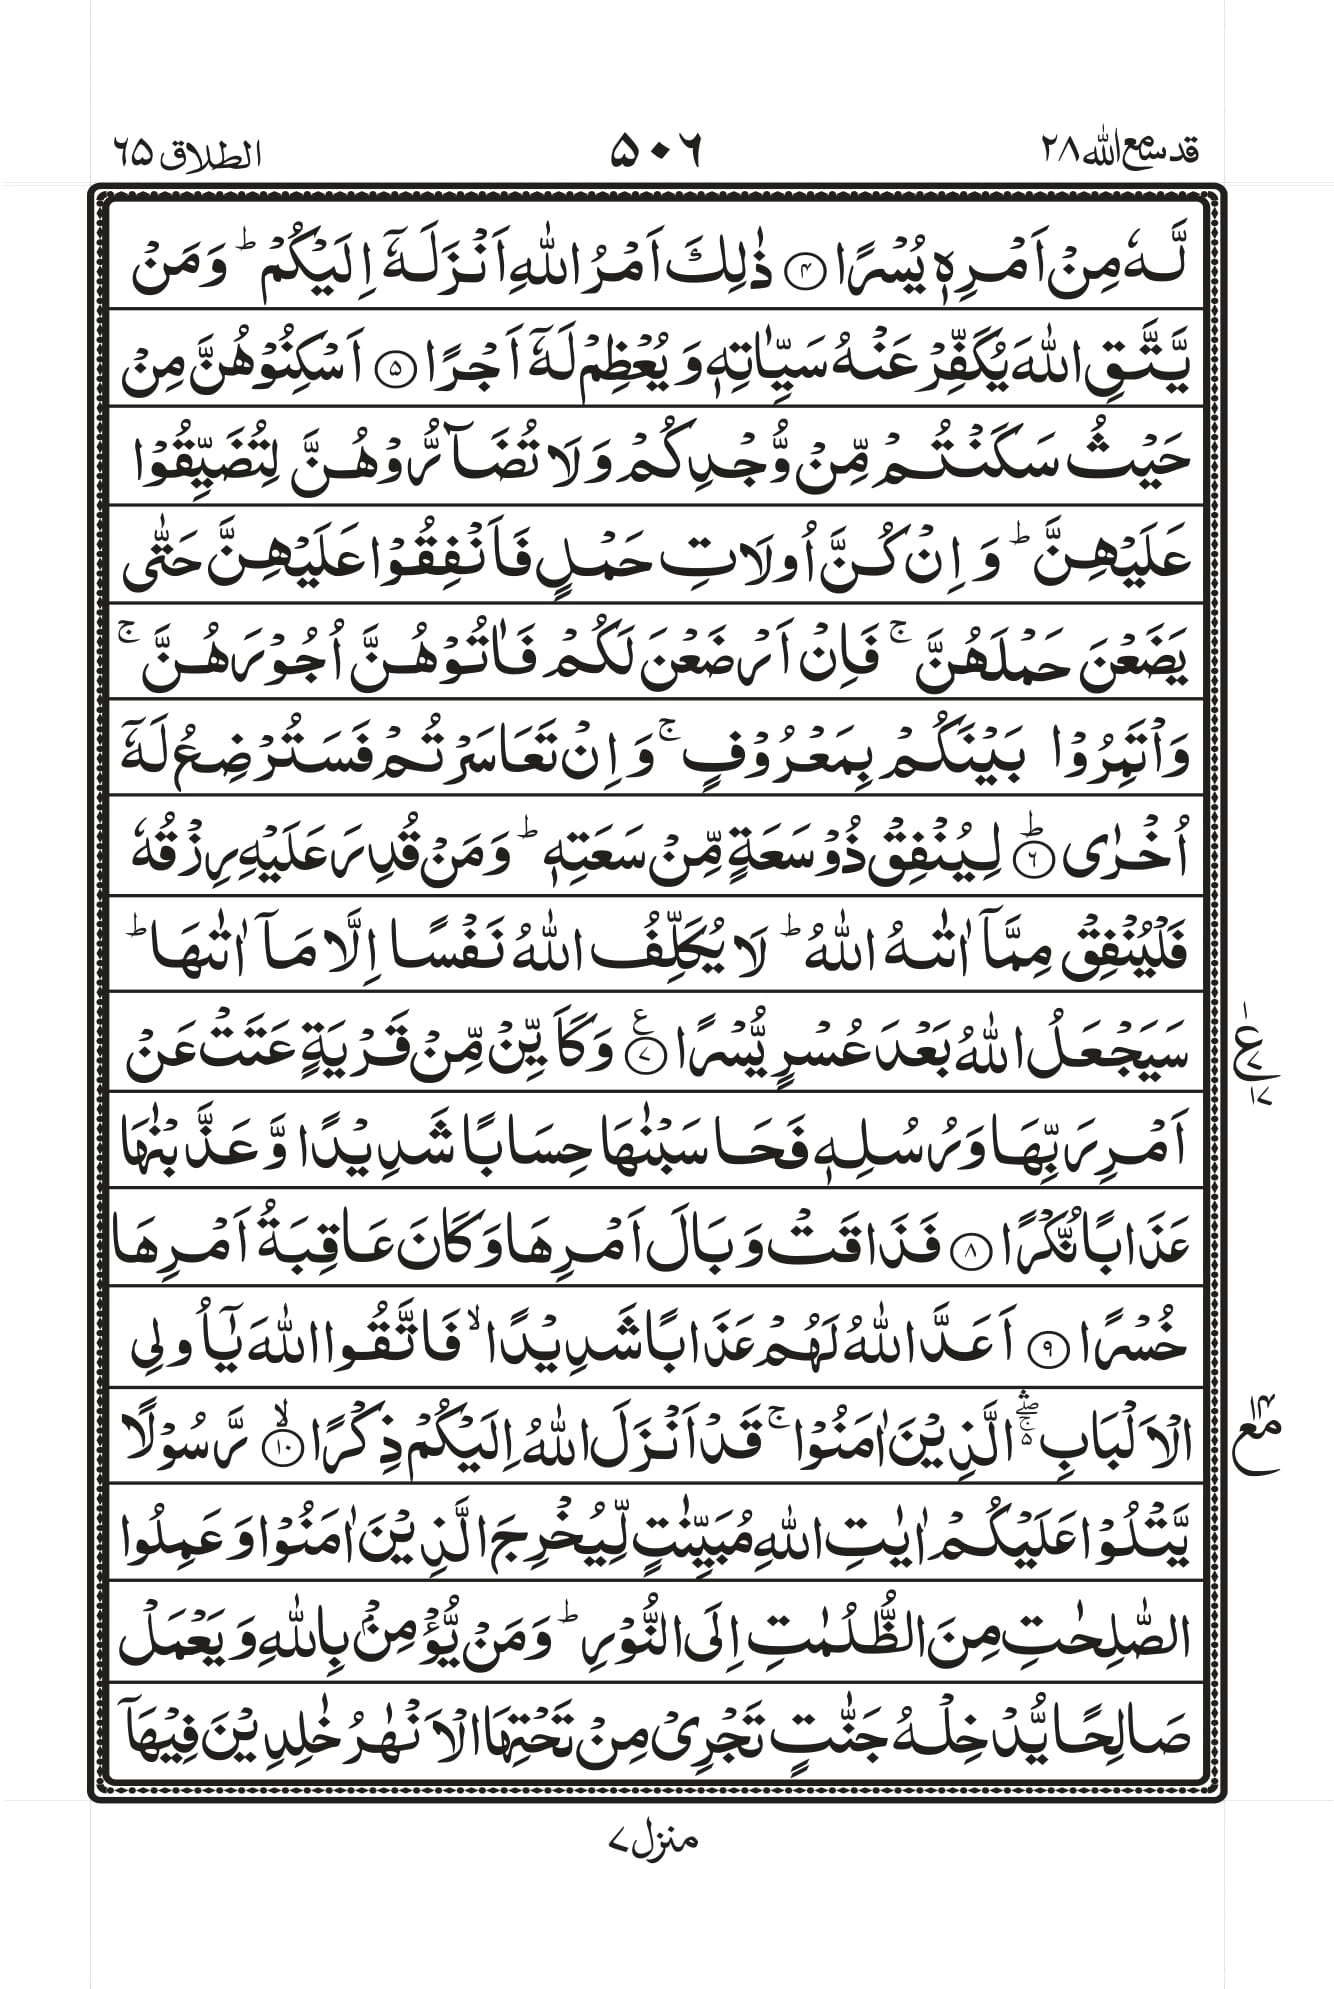 قد سمع الله ٢٨
٥٠٦
الطلاق ٦٥
لَّهٗ مِنْ اَمْرِهٖ يُسْرًا ﴿۴﴾ ذٰلِكَ اَمْرُ اللّٰهِ اَنْزَلَهٗۤ اِلَيْكُمْ ؕ وَمَنْ
يَّتَّقِ اللّٰهَ يُكَفِّرْ عَنْهُ سَيِّاٰتِهٖ وَيُعْظِمْ لَهٗۤ اَجْرًا ﴿۵﴾ اَسْكِنُوْهُنَّ مِنْ
حَيْثُ سَكَنْتُمْ مِّنْ وُّجْدِكُمْ وَلَا تُضَآرُّوْهُنَّ لِتُضَيِّقُوْا
عَلَيْهِنَّ ؕ وَاِنْ كُنَّ اُولَاتِ حَمْلٍ فَاَنْفِقُوْا عَلَيْهِنَّ حَتّٰى
يَضَعْنَ حَمْلَهُنَّ ۚ فَاِنْ اَرْضَعْنَ لَكُمْ فَاٰتُوْهُنَّ اُجُوْرَهُنَّ ۚ
وَاْتَمِرُوْا بَيْنَكُمْ بِمَعْرُوْفٍ ۚ وَاِنْ تَعَاسَرْتُمْ فَسَتُرْضِعُ لَهٗۤ
اُخْرٰى ؕ﴿۶﴾ لِيُنْفِقْ ذُوْ سَعَةٍ مِّنْ سَعَتِهٖ ؕ وَمَنْ قُدِرَ عَلَيْهِ رِزْقُهٗ
فَلْيُنْفِقْ مِمَّاۤ اٰتٰىهُ اللّٰهُ ؕ لَا يُكَلِّفُ اللّٰهُ نَفْسًا اِلَّا مَاۤ اٰتٰىهَا ؕ
سَيَجْعَلُ اللّٰهُ بَعْدَ عُسْرٍ يُّسْرًا ﴿۷﴾ع وَكَاَيِّنْ مِّنْ قَرْيَةٍ عَتَتْ عَنْ
ع ١ ٧ ١٧
اَمْرِ رَبِّهَا وَرُسُلِهٖ فَحَاسَبْنٰهَا حِسَابًا شَدِيْدًا وَّعَذَّبْنٰهَا
عَذَابًا نُّكْرًا ﴿۸﴾ فَذَاقَتْ وَبَالَ اَمْرِهَا وَكَانَ عَاقِبَةُ اَمْرِهَا
خُسْرًا ﴿۹﴾ اَعَدَّ اللّٰهُ لَهُمْ عَذَابًا شَدِيْدًا ۙ فَاتَّقُوا اللّٰهَ يٰۤاُولِى
الْاَلْبَابِ ۛۖۚ۬ الَّذِيْنَ اٰمَنُوْا ۚ قَدْ اَنْزَلَ اللّٰهُ اِلَيْكُمْ ذِكْرًا ۙ﴿۱۰﴾ رَّسُوْلًا
مع ١٤
يَّتْلُوْا عَلَيْكُمْ اٰيٰتِ اللّٰهِ مُبَيِّنٰتٍ لِّيُخْرِجَ الَّذِيْنَ اٰمَنُوْا وَعَمِلُوا
الصّٰلِحٰتِ مِنَ الظُّلُمٰتِ اِلَى النُّوْرِ ؕ وَمَنْ يُّؤْمِنْۢ بِاللّٰهِ وَيَعْمَلْ
صَالِحًا يُّدْخِلْهُ جَنّٰتٍ تَجْرِىْ مِنْ تَحْتِهَا الْاَنْهٰرُ خٰلِدِيْنَ فِيْهَاۤ
منزل ٧